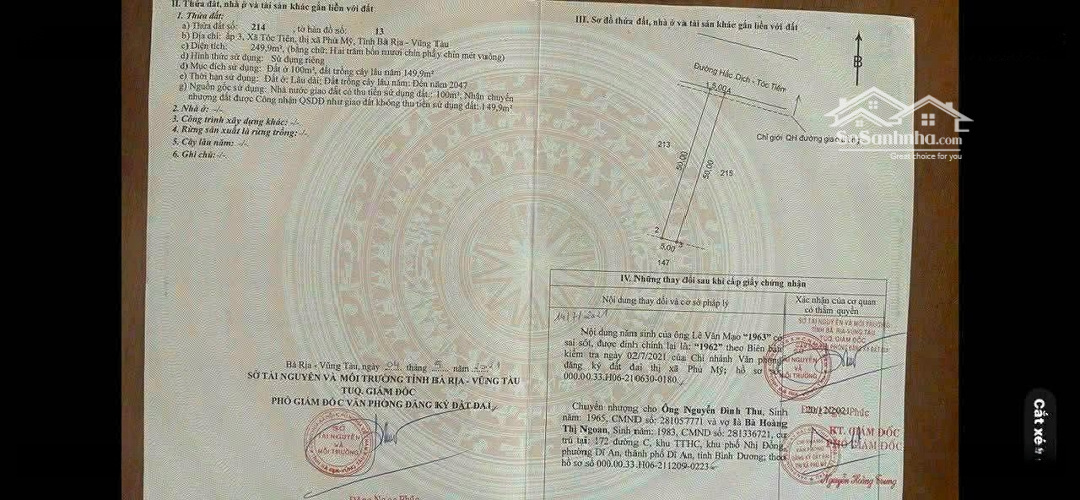 II. Thửa đất, nhà ở và tài sản khác gắn liền với đất
1. Thửa đất:
a) Thửa đất số: 214 , tờ bản đồ số: 13
b) Địa chỉ: ấp 3, Xã Tóc Tiên, thị xã Phú Mỹ, Tỉnh Bà Rịa - Vũng Tàu
c) Diện tích: 249,9m², (bằng chữ: Hai trăm bốn mươi chín phẩy chín mét vuông)
d) Hình thức sử dụng: Sử dụng riêng
đ) Mục đích sử dụng: Đất ở 100m², đất trồng cây lâu năm 149,9m²
e) Thời hạn sử dụng: Đất ở: Lâu dài; Đất trồng cây lâu năm: Đến năm 2047
g) Nguồn gốc sử dụng: Nhà nước giao đất có thu tiền sử dụng đất: 100m², Nhận chuyển
nhượng đất được Công nhận QSDĐ như giao đất không thu tiền sử dụng đất: 149,9m²
2. Nhà ở: -/-
3. Công trình xây dựng khác: -/-
4. Rừng sản xuất là rừng trồng: -/-
5. Cây lâu năm: -/-
6. Ghi chú: -/-
Bà Rịa - Vũng Tàu, ngày 04 tháng 5 năm 2021
SỞ TÀI NGUYÊN VÀ MÔI TRƯỜNG TỈNH BÀ RỊA - VŨNG TÀU
TUQ. GIÁM ĐỐC
PHÓ GIÁM ĐỐC VĂN PHÒNG ĐĂNG KÝ ĐẤT ĐAI
SỞ
TÀI NGUYÊN
VÀ
MÔI TRƯỜNG
III. Sơ đồ thửa đất, nhà ở và tài sản khác gắn liền với đất
B
Đường Hắc Dịch - Tóc Tiên
1 5,00 4
Chỉ giới QH đường giao thông
213
50,00
50,00
215
2
5,00
3
147
SoSanhnha.com
Great choice for you
IV. Những thay đổi sau khi cấp giấy chứng nhận
Nội dung thay đổi và cơ sở pháp lý
Xác nhận của cơ quan
có thẩm quyền
14/7/2021
Nội dung năm sinh của ông Lê Văn Mạo “1963” có
sai sót, được đính chính lại là: “1962” theo Biên bản
kiểm tra ngày 02/7/2021 của Chi nhánh Văn phòng
đăng ký đất đai thị xã Phú Mỹ; hồ sơ số
000.00.33.H06-210630-0180.
SỞ TÀI NGUYÊN VÀ MÔI TRƯỜNG
TỈNH BÀ RỊA-VŨNG TÀU
TUQ. GIÁM ĐỐC
SỞ
TÀI NGUYÊN
VÀ
MÔI TRƯỜNG
Chuyển nhượng cho Ông Nguyễn Đình Thu, Sinh
năm: 1965, CMND số: 281057771 và vợ là Bà Hoàng
Thị Ngoan, Sinh năm: 1983, CMND số: 281336721, cư
trú tại: 172 đường C, khu TTHC, khu phố Nhị Đồng,
phường Dĩ An, thành phố Dĩ An, tỉnh Bình Dương; theo
hồ sơ số 000.00.33.H06-211209-0223.
20/12/2021
KT. GIÁM ĐỐC
PHÓ GIÁM ĐỐC
CHI NHÁNH
VĂN PHÒNG
ĐĂNG KÝ ĐẤT ĐAI
THỊ XÃ PHÚ MỸ
Nguyễn Hoàng Trung
Cắt xé